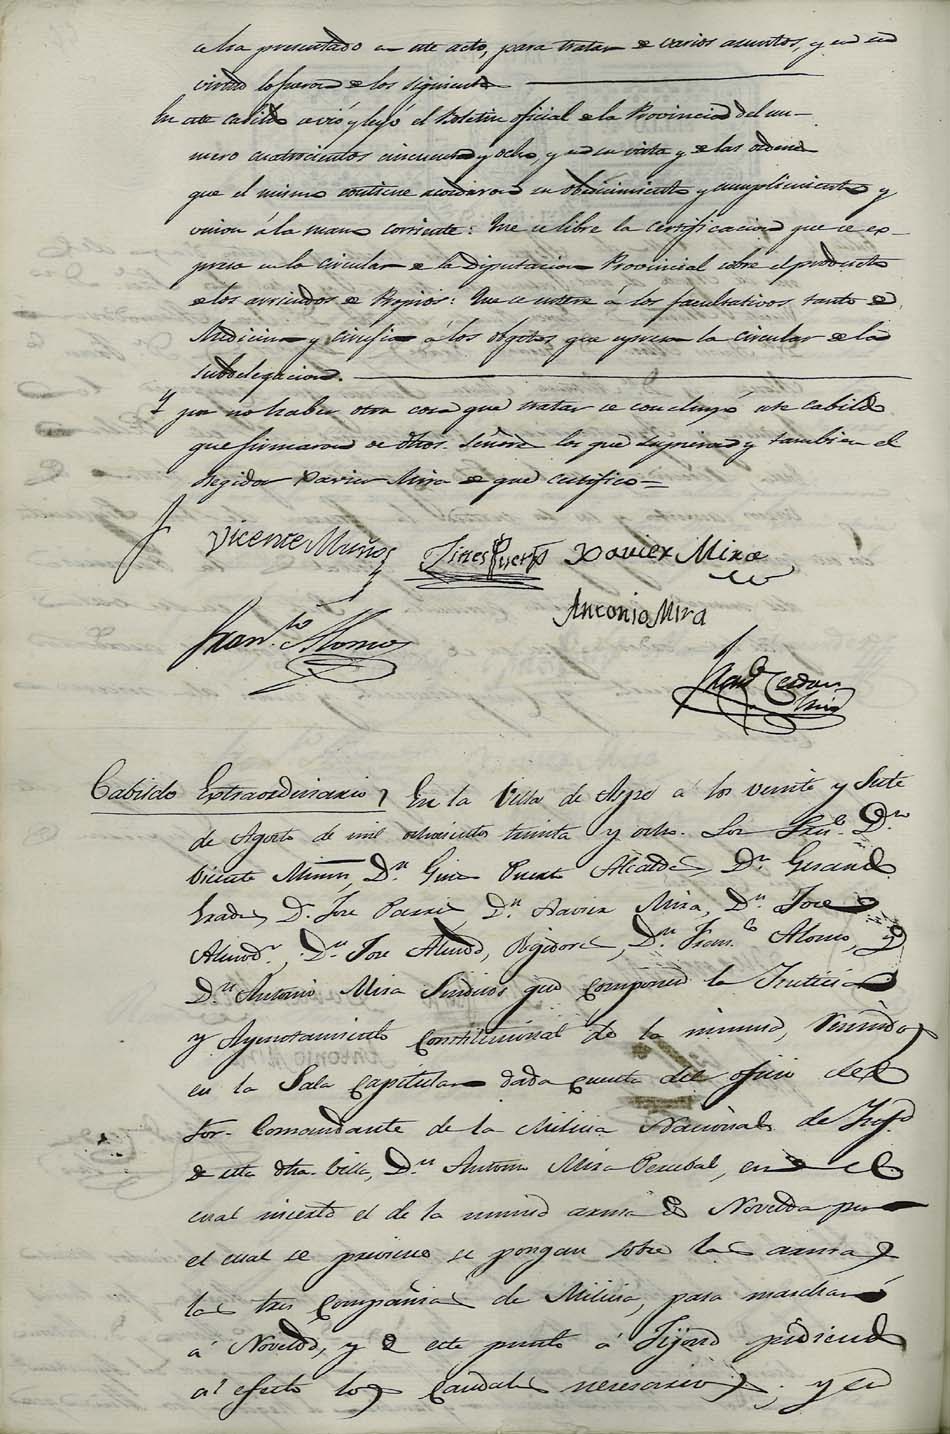 se ha presentado en este acto, para tratar de varios asuntos, y en su
virtud lo fueron de los siguientes
En este cabildo se vió y leyó el Boletin oficial de la Provincia del nu-
mero cuatrocientos cincuenta y ocho y en su vista y de las ordenes
que el mismo contiene acordaron su obedecimiento y cumplimiento y
union á la mano corriente: Que se libre la certificacion que se ex-
presa en la circular de la Diputacion Provincial sobre el producto
de los arriendos de Propios: Que se entere á los facultativos tanto de
Medicina y Cirujia á los objetos que espresa la circular de la
subdelegacion.
Y por no haber otra cosa que tratar se concluyó este cabildo
que firmaron de dhos. Señores los que supieron y tambien el
Regidor Xavier Mira de que certifico
Vicente Muños Jines Puerto Xavier Mira
Antonio Mira
Fran.co Alonso
Fran.co Cerdan
Cabildo Extraordinario En la Villa de Aspe á los veinte y Siete
de Agosto de mil ochocientos treinta y ocho. Los Sres. Dn.
Vicente Muños, Dn. Gines Puerto Alcaldes, Dn.
Dn. Jose Dn. Xavier Mira, Dn. Jose
Almodr., Dn. Jose Regidores, Dn. Franco. Alonso, y
Dn. Antonio Mira Sindicos que componen la Justicia
y Ayuntamiento Constitucional de la misma, Reunidos
en la Sala Capitular dada cuenta del oficio del
Sor. Comandante de la Milicia Nacional de Infa
de esta dha. Villa, Dn. Antonio Mira Percebal, en el
cual inserta el de la misma arma de Novelda por
el cual se previene se pongan sobre las armas
las tres Compañias de Milicia, para marchar
á Novelda, y de este punto á Jijona pidiendo
al efecto los caudales necesarios; y en